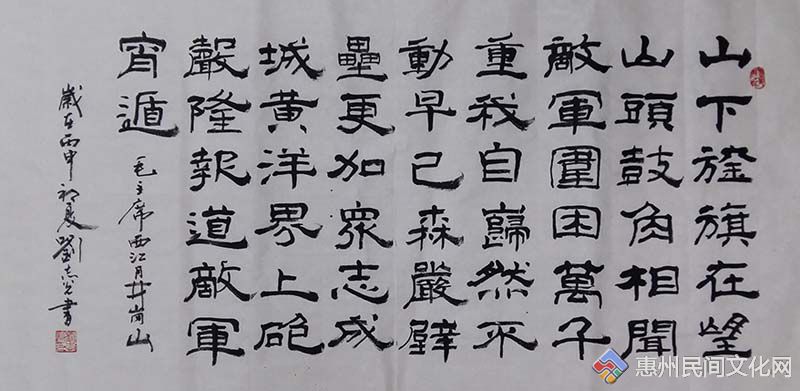 山下旌旗在望
山頭鼓角相聞
敵軍圍困萬千
重我自巋然不
動早已森嚴壁
壘更加眾志成
城黃洋界上砲
聲隆報道敵軍
宵遁
毛主席西江月井崗山
歲在丙申初夏劉志光書
惠州民间文化网